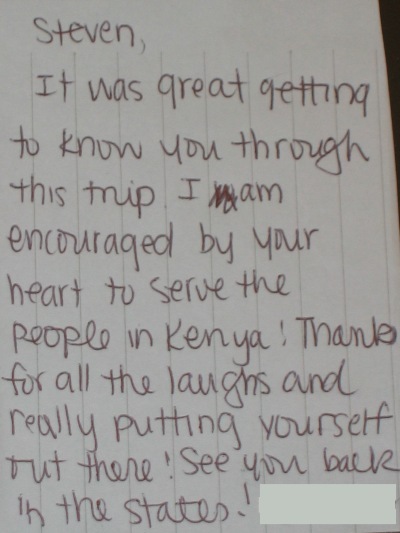 Steven,
It was great getting
to know you through
this trip. I am
encouraged by your
heart to serve the
people in Kenya! Thanks
for all the laughs and
really putting yourself
out there! See you back
in the states!